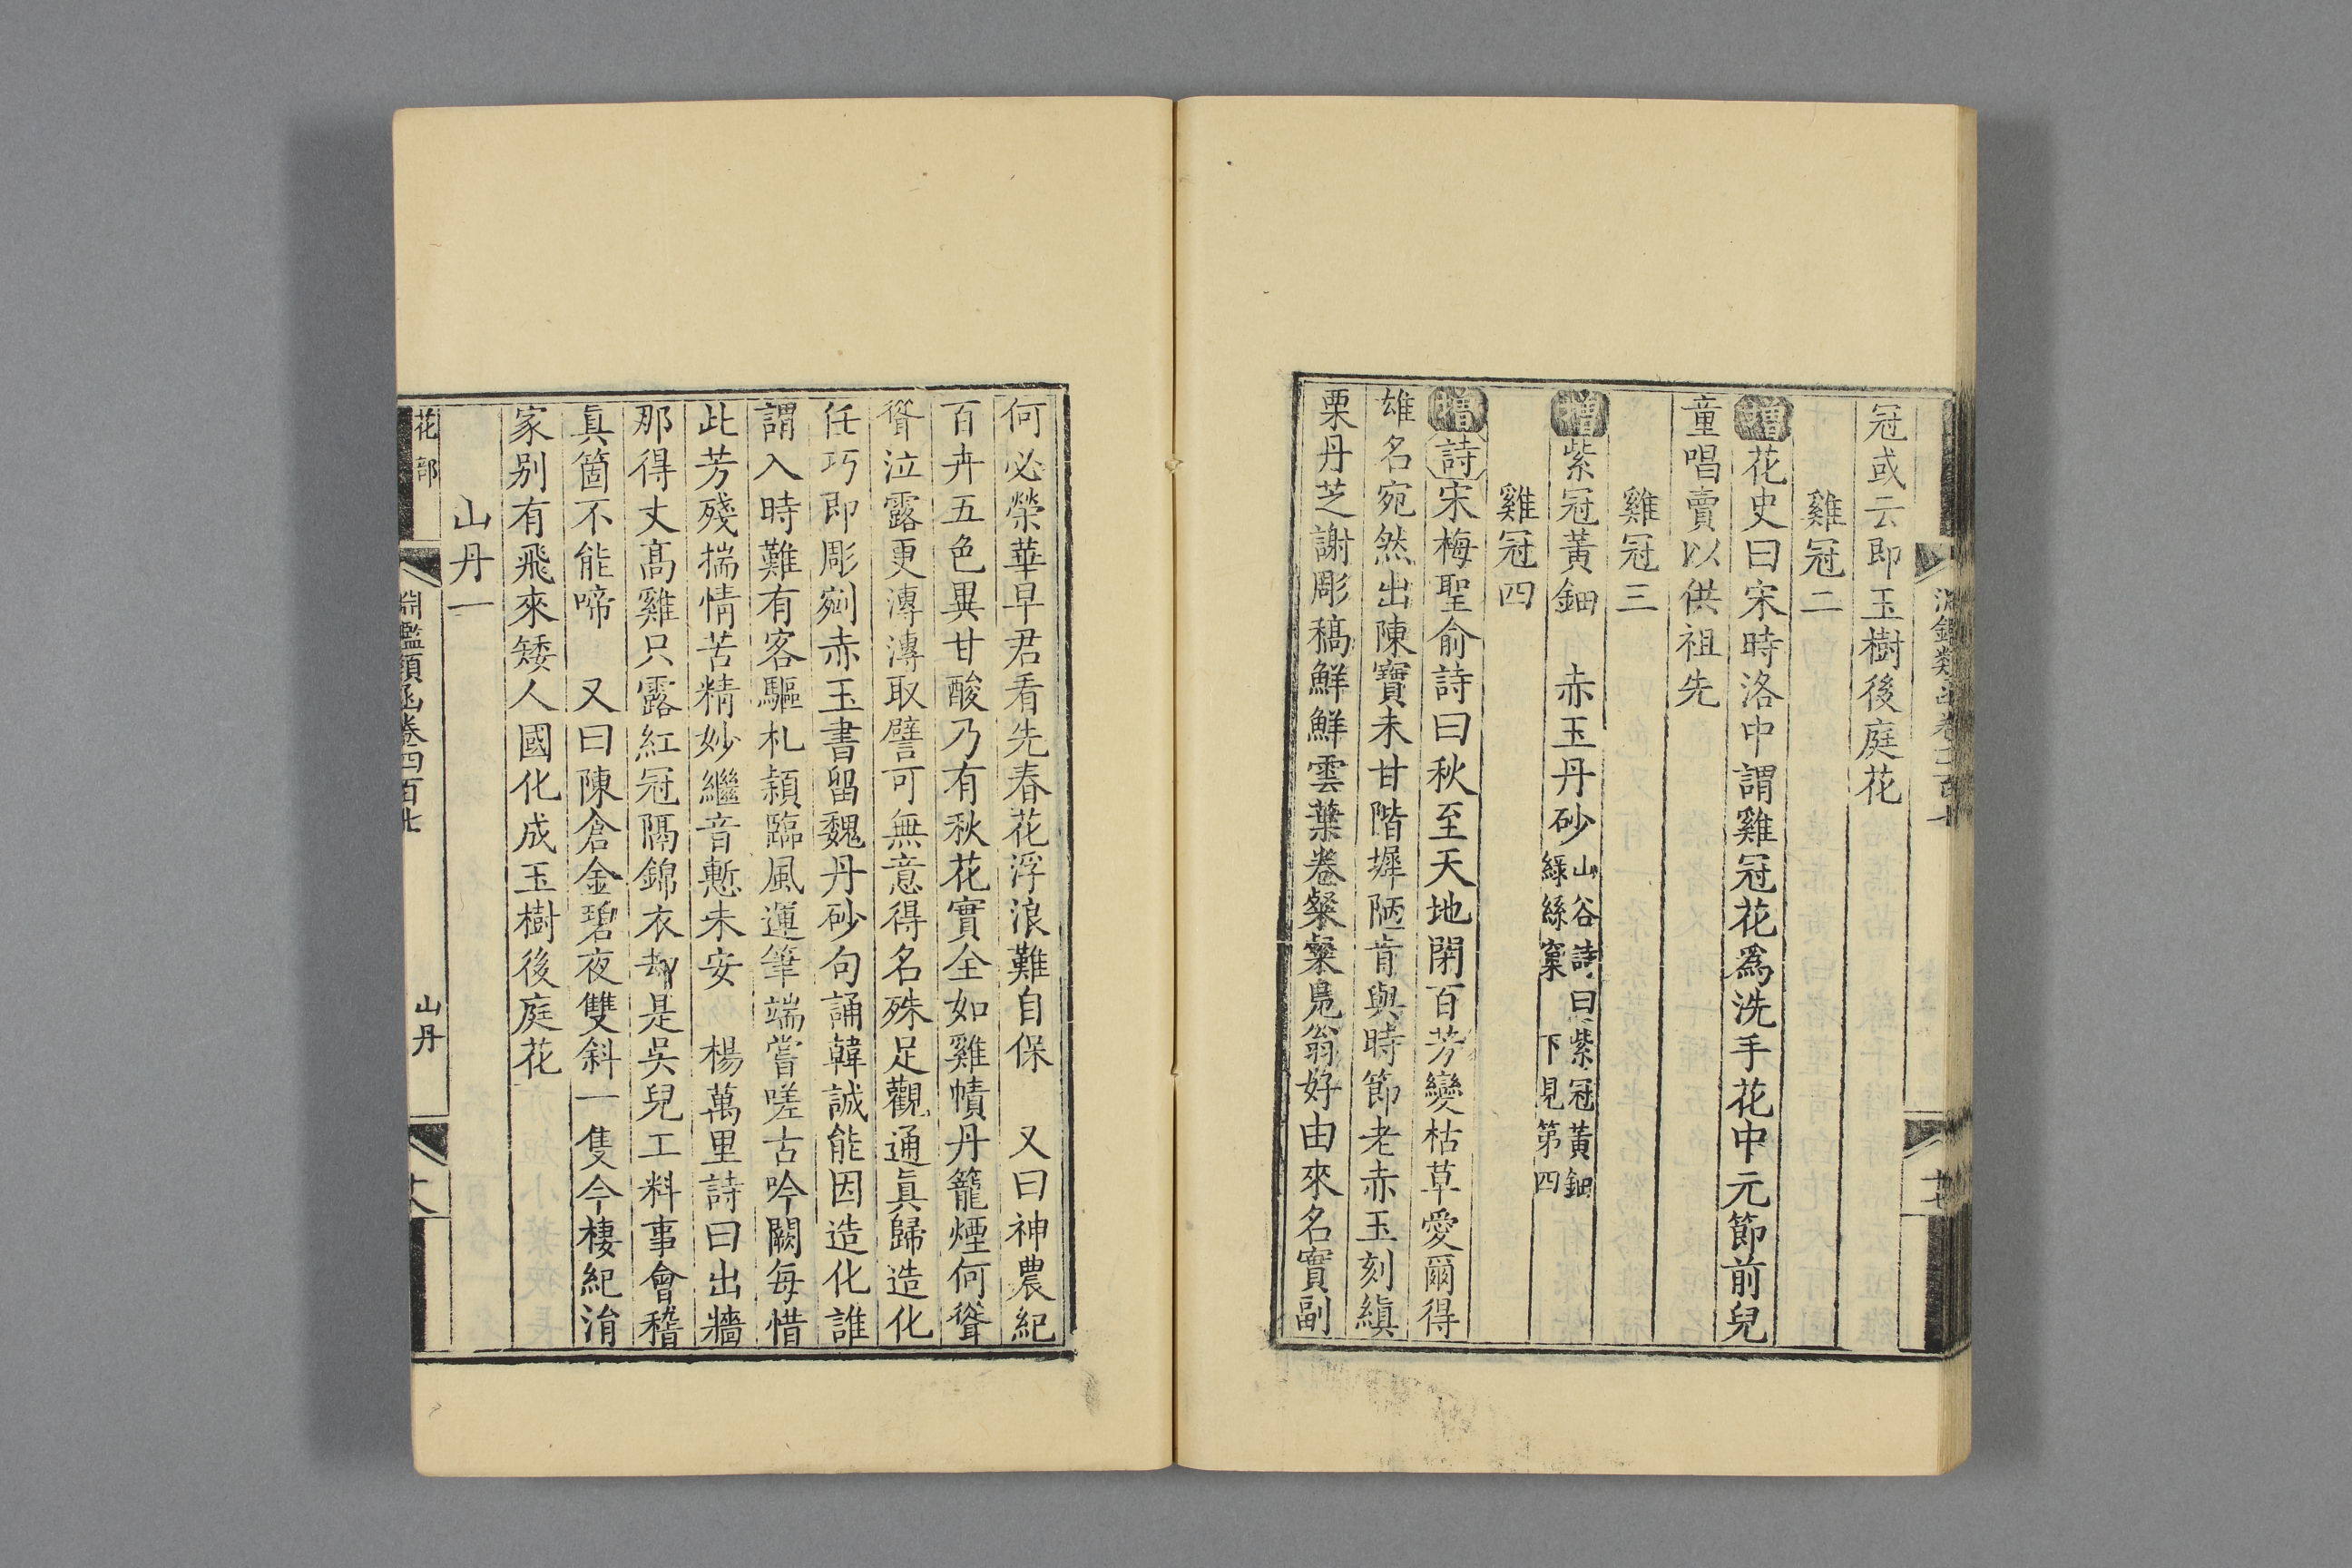 冠或云即玉樹後庭花
雞冠二
增花史曰宋時洛中謂雞冠花爲洗手花中元節前兒
童唱賣以供祖先
雞冠三
增紫冠黃鈿 赤玉丹砂山谷詩曰紫冠黃鈿
綠絲窠 下見第四
雞冠四
增詩宋梅聖俞詩曰秋至天地閉百芳變枯草愛爾得
雄名宛然出陳寶未甘階墀陋肯與時節老赤玉刻縝
栗丹芝謝彫槁鮮鮮雲葉卷粲粲鳧翁好由來名實副
何必榮華早君看先春花浮浪難自保 又曰神農紀
百卉五色異甘酸乃有秋花實全如雞幘丹籠煙何聳
聳泣露更漙漙取譬可無意得名殊足觀通眞歸造化
任巧即彫剜赤玉書留魏丹砂句誦韓誠能因造化誰
謂入時難有客驅札穎臨風運筆端嘗嗟古吟闕每惜
此芳殘揣情苦精妙繼音慙未安 楊萬里詩曰出牆
那得丈高雞只露紅冠隔錦衣却是吳兒工料事會稽
眞箇不能啼 又曰陳倉金碧夜雙斜一隻今棲紀渻
家别有飛來矮人國化成玉樹後庭花
山丹一
花部
淵鑑類函卷四百七
山丹